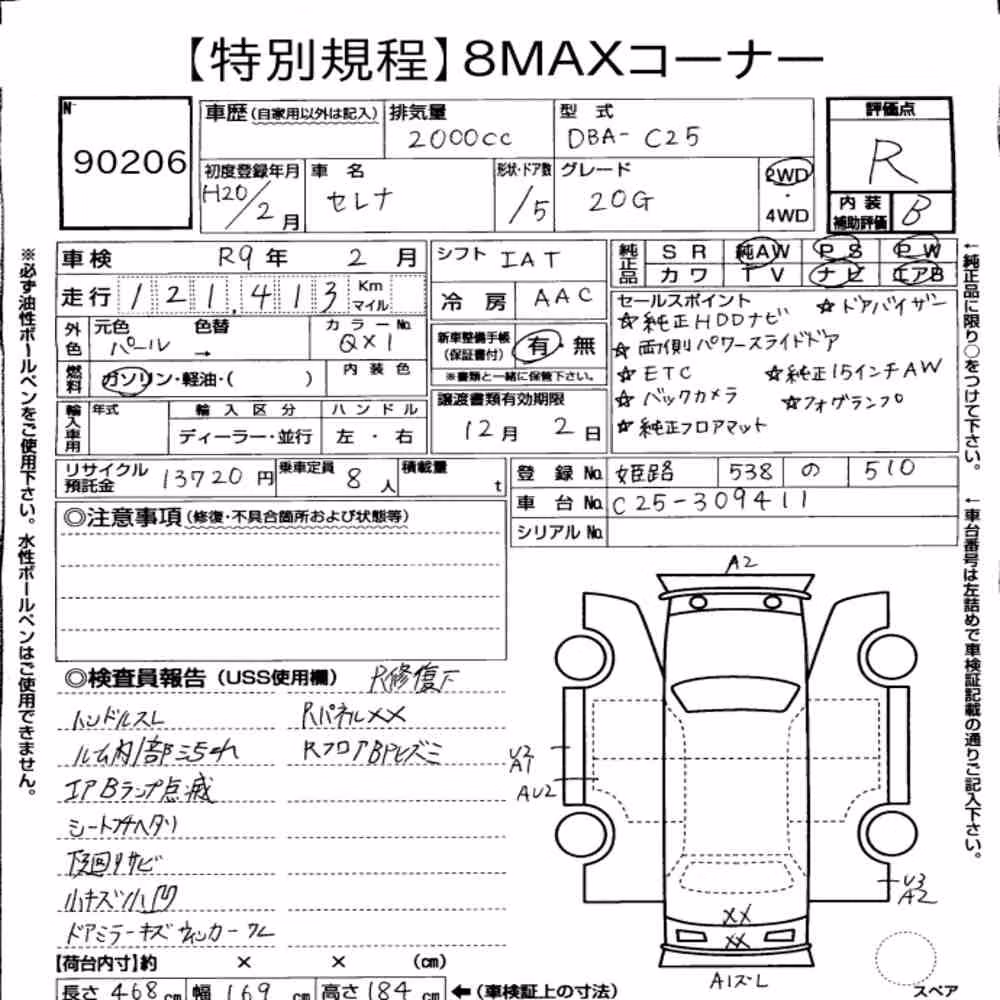 【特別規程】8MAXコーナー
No 90206
車歴(自家用以外は記入) 排気量 2000cc 型式 DBA-C25
評価点 R
初度登録年月 H20/2月 車名 セレナ 形状・ドア数 /5 グレード 20G 2WD・4WD
内装補助評価 B
車検 R9年 2月 シフト IAT 純正品 SR 純AW PS PW
カワ TV ナビ エアB
走行 121,413 Km マイル 冷房 AAC
セールスポイント
☆純正HDDナビ ☆ドアバイザー
☆両側パワースライドドア
☆ETC ☆純正15インチAW
☆バックカメラ ☆フォグランプ
☆純正フロアマット
外色 元色 パール 色替 → カラーNo. QX1
新車整備手帳(保証書付) 有・無
※書類と一緒に保管下さい。
燃料 ガソリン・軽油・( ) 内装色
譲渡書類有効期限 12月 2日
輸入車用 年式 輸入区分 ハンドル
ディーラー・並行 左・右
リサイクル預託金 13720円 乗車定員 8人 積載量 t
登録No. 姫路 538 の 510
車台No. C25-309411
シリアルNo.
◎注意事項(修復・不具合箇所および状態等)
◎検査員報告(USS使用欄) R修復下
ハンドルスレ RパネルXX
ルーム内1部ミラ5れ RフロアBPレズミ
エアBランプ点滅
シートコゲヘタリ
下回りサビ
小キズ小凹
ドアミラーキズ ウィンカーワレ
【荷台内寸】約 × × (cm)
長さ 468cm 幅 169cm 高さ 184cm ←(車検証上の寸法)
※必ず油性ボールペンをご使用下さい。水性ボールペンはご使用できません。
←純正品に限り○をつけて下さい。
←車台番号は左詰めで車検証記載の通りご記入下さい。
A2
U2
A1
AU2
U3
A2
XX
XX
A1ズレ
スペア